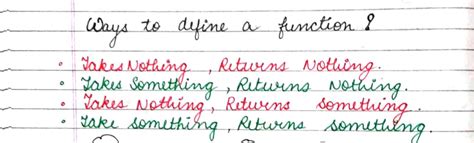 Ways to define a function ?
• Takes Nothing , Returns Nothing.
• Takes Something , Returns Nothing.
• Takes Nothing, Returns something.
• Take something, Returns something.